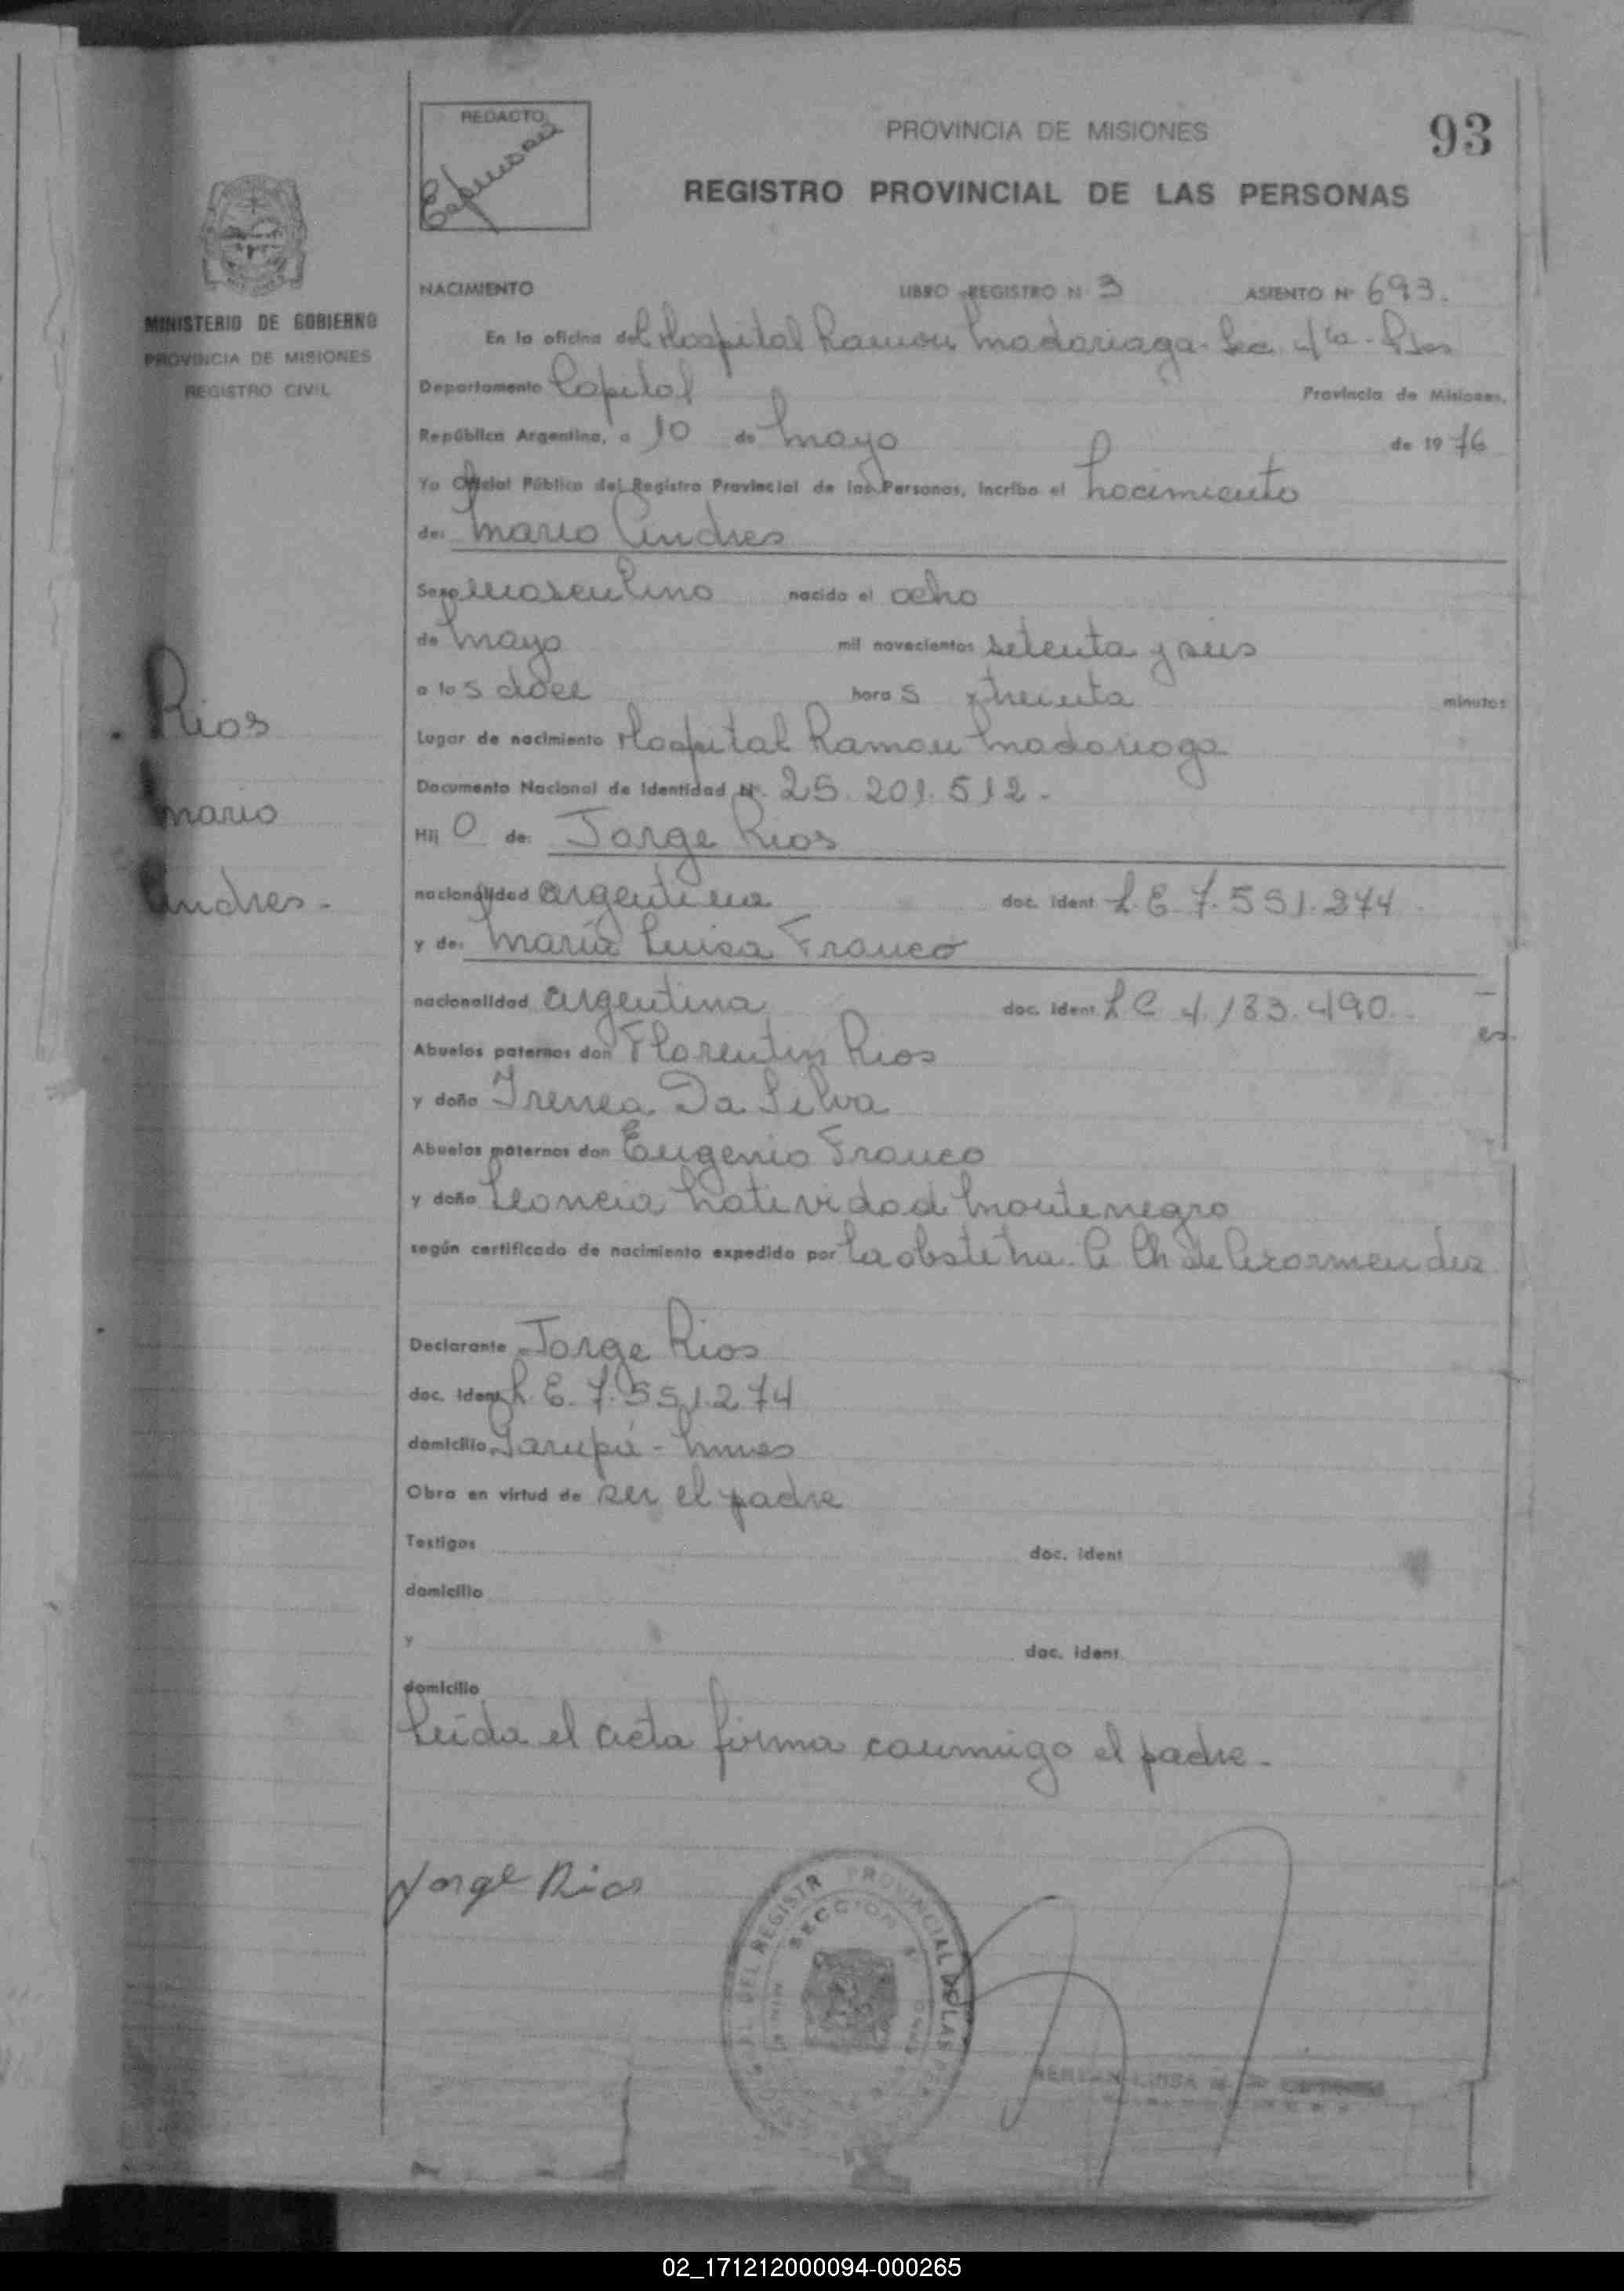 REDACTO
PROVINCIA DE MISIONES
93
REGISTRO PROVINCIAL DE LAS PERSONAS
MINISTERIO DE GOBIERNO
PROVINCIA DE MISIONES
REGISTRO CIVIL
NACIMIENTO LIBRO REGISTRO N 3 ASIENTO Nº 693.
En la oficina del Hospital Ramon Madariaga. Sec. 4ta - Pdas
Departamento Capital Provincia de Misiones,
República Argentina, a 10 de Mayo de 1976
Yo Oficial Público del Registro Provincial de las Personas, incribo el Nacimiento
de: Mario Andres
Sexo Masculino nacido el ocho
de Mayo mil novecientos setenta y seis
a las doce horas y treinta minutos
Lugar de nacimiento Hospital Ramon Madariaga
Documento Nacional de Identidad Nº. 25.201.512.-
Hijo de: Jorge Rios
nacionalidad argentina doc. ident. L.E. 7.551.274
y de: María Luisa Franco
nacionalidad argentina doc. ident. L C 4.133.490.
Abuelos paternos don Florentin Rios
y doña Irenea Da Silva
Abuelos maternos don Eugenio Franco
y doña Leoncia Natividad Montenegro
según certificado de nacimiento expedido por la obstetra. C. Ch de
Rios
Mario
Andres.-
Declarante Jorge Rios
doc. ident. L.E. 7.551.274
domicilio Garupá - Mnes
Obra en virtud de ser el padre
Testigos doc. ident
domicilio
y doc. ident.
domicilio
Leída el acta firma conmigo el padre.-
Jorge Rios
DEL REGISTR PROVINCIAL DE LAS
SECCION
02_171212000094-000265